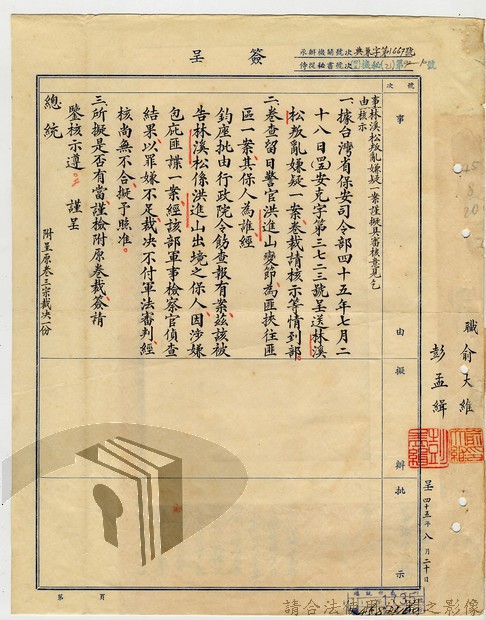 簽呈
承辦機關號次典東字第1667號
侍從秘書號次
號次
事由
擬辦
批示
事由
林溪松叛亂嫌疑一案謹擬具審核意見乞核示
一、據台灣省保安司令部四十五年七月二
十八日(罒)安克字第三七二三號呈送林溪
松叛亂嫌疑一案卷裁請核示等情到部
二、卷查留日警官洪進山變節為匪挾往匪
區一案其保人為誰經
鈞座批由行政院令飭查報有案茲該被
告林溪松係洪進山出境之保人因涉嫌
包庇匪諜一案經該部軍事檢察官偵查
結果以罪嫌不足裁決不付軍法審判經
核尚無不合擬予照准
三、所擬是否有當謹檢附原卷裁簽請
鑒核示遵 謹呈
總統
附呈原卷三宗裁決一份
職 俞大維
彭孟緝
呈 四十五年八月二十日
第 頁
請合法使用
之影像